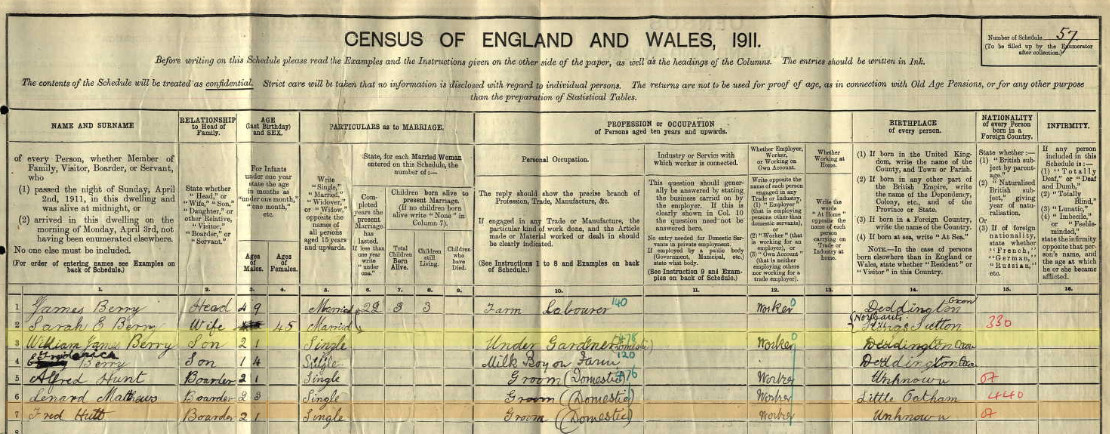 CENSUS OF ENGLAND AND WALES, 1911.
Number of Schedule 57
(To be filled up by the Enumerator
after collection.)
Before writing on this Schedule please read the Examples and the Instructions given on the other side of the paper, as well as the headings of the Columns. The entries should be written in Ink.
The contents of the Schedule will be treated as confidential. Strict care will be taken that no information is disclosed with regard to individual persons. The returns are not to be used for proof of age, as in connection with Old Age Pensions, or for any other purpose
than the preparation of Statistical Tables.
NAME AND SURNAME
of every Person, whether Member of
Family, Visitor, Boarder, or Servant,
who
(1) passed the night of Sunday, April
2nd, 1911, in this dwelling and
was alive at midnight, or
(2) arrived in this dwelling on the
morning of Monday, April 3rd, not
having been enumerated elsewhere.
No one else must be included.
(For order of entering names see Examples on
back of Schedule.)
1.
RELATIONSHIP
to Head of
Family.
State whether
"Head," or
"Wife," "Son,"
"Daughter," or
other Relative,
"Visitor,"
"Boarder," or
"Servant."
2.
AGE
(last Birthday)
and SEX.
For Infants
under one year
state the age
in months as
"under one month,"
"one month,"
etc.
Ages
of
Males.
Ages
of
Females.
3.
4.
PARTICULARS as to MARRIAGE.
Write
"Single,"
"Married,"
"Widower,"
or "Widow,"
opposite the
names of
all persons
aged 15 years
and upwards.
5.
State, for each Married Woman
entered on this Schedule, the
number of :—
Completed
years the
present
Marriage
has
lasted.
If less than
one year
write
"under
one."
6.
Children born alive to
present Marriage.
(If no children born
alive write "None" in
Column 7).
Total
Children
Born
Alive.
7.
Children
still
Living.
8.
Children
who
have
Died.
9.
PROFESSION or OCCUPATION
of Persons aged ten years and upwards.
Personal Occupation.
The reply should show the precise branch of
Profession, Trade, Manufacture, &c.
If engaged in any Trade or Manufacture, the
particular kind of work done, and the Article
made or Material worked or dealt in should
be clearly indicated.
(See Instructions 1 to 8 and Examples on back
of Schedule.)
10.
Industry or Service with
which worker is connected.
This question should generally
be answered by stating
the business carried on by
the employer. If this is
clearly shown in Col. 10
the question need not be
answered here.
No entry needed for Domestic Servants
in private employment.
If employed by a public body
(Government, Municipal, etc.)
state what body.
(See Instruction 9 and Examples
on back of Schedule.)
11.
Whether Employer,
Worker,
or Working on
Own Account.
12.
Whether
Working at
Home.
13.
BIRTHPLACE
of every person.
(1) If born in the United Kingdom,
write the name of the
County, and Town or Parish.
(2) If born in any other part of
the British Empire, write
the name of the Dependency,
Colony, etc., and of the
Province or State.
(3) If born in a Foreign Country,
write the name of the Country.
(4) If born at sea, write "At Sea."
NOTE.—In the case of persons
born elsewhere than in England or
Wales, state whether "Resident" or
"Visitor" in this Country.
14.
NATIONALITY
of every Person
born in a
Foreign Country.
State whether :—
(1) "British subject
by parentage."
(2) "Naturalised
British subject,"
giving
year of naturalisation.
Or
(3) If of foreign
nationality,
state whether
"French,"
"German,"
"Russian,"
etc.
15.
INFIRMITY.
If any person
included in this
Schedule is :—
(1) "Totally
Deaf," or "Deaf
and Dumb,"
(2) "Totally
Blind,"
(3) "Lunatic,"
(4) "Imbecile,"
or "Feeble-minded,"
state the infirmity
opposite that
person's name,
and the age at
which he or she
became afflicted.
16.
1 James Berry Head 49 Married 22 3 3 Farm Labourer 140 Worker Deddington Oxon
2 Sarah E Berry Wife 45 Married Kings Sutton 330
3 William James Berry Son 21 Single Under Gardener Domestic Worker Deddington Oxon
4 Berry Son 14 Single Milk Boy on Farm 120 Deddington Oxon
5 Alfred Hunt Boarder 21 Single Groom (Domestic) Worker Unknown
6 Lenard Matthews Boarder 23 Single Groom (Domestic) Worker Little Oatham 440
7 Fred Hutt Boarder 21 Single Groom (Domestic) Worker Unknown
8